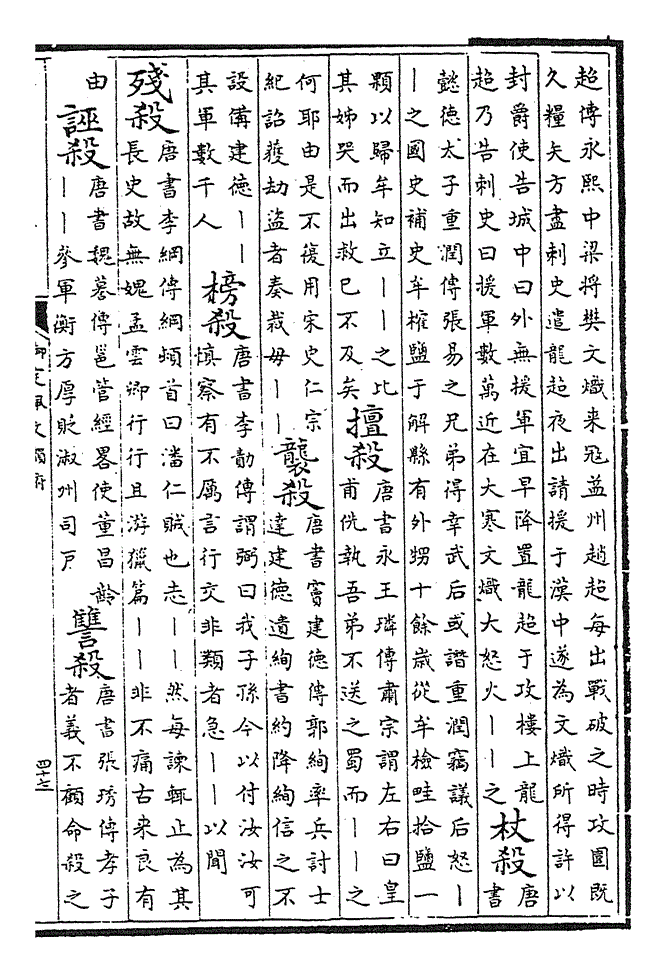 超傳永熙中梁將樊文熾来冦益州趙超每出戰破之時攻圍既
久糧矢方盡刺史遣龍超夜出請援于漢中遂為文熾所得許以
封爵使告城中曰外無援軍宜早降置龍超于攻樓上龍
超乃告刺史曰援軍數萬近在大寒文熾大怒火丨丨之
杖殺
唐
書
懿德太子重潤傳張易之兄弟得幸武后或譖重潤竊議后怒丨
丨之國史補史牟榷鹽于解縣有外甥十餘歲從牟檢畦拾鹽一
顆以歸牟知立丨丨之比
其姊哭而出救已不及矣
擅殺
唐書永王璘傳肅宗謂左右曰皇
甫侁執吾弟不送之蜀而丨丨之
何耶由是不復用宋史仁宗
紀詔獲劫盜者奏裁毋丨丨
襲殺
唐書竇建德傳郭絢率兵討士
達建德遺絢書約降絢信之不
設備建德丨丨
其軍數千人
榜殺
唐書李勣傳謂弼曰我子孫今以付汝汝可
慎察有不厲言行交非類者急丨丨以聞
殘殺
唐書李綱傳綱頓首曰潘仁賊也志丨丨然每諫輒止為其
長史故無媿孟雲卿行行且游獵篇丨丨非不痛古来良有
由
誣殺
唐書魏謩傳邕管經畧使董昌齡
丨丨參軍衡方厚貶溆州司戸
讐殺
唐書張琇傳孝子
者義不顧命殺之
御定佩文韻府